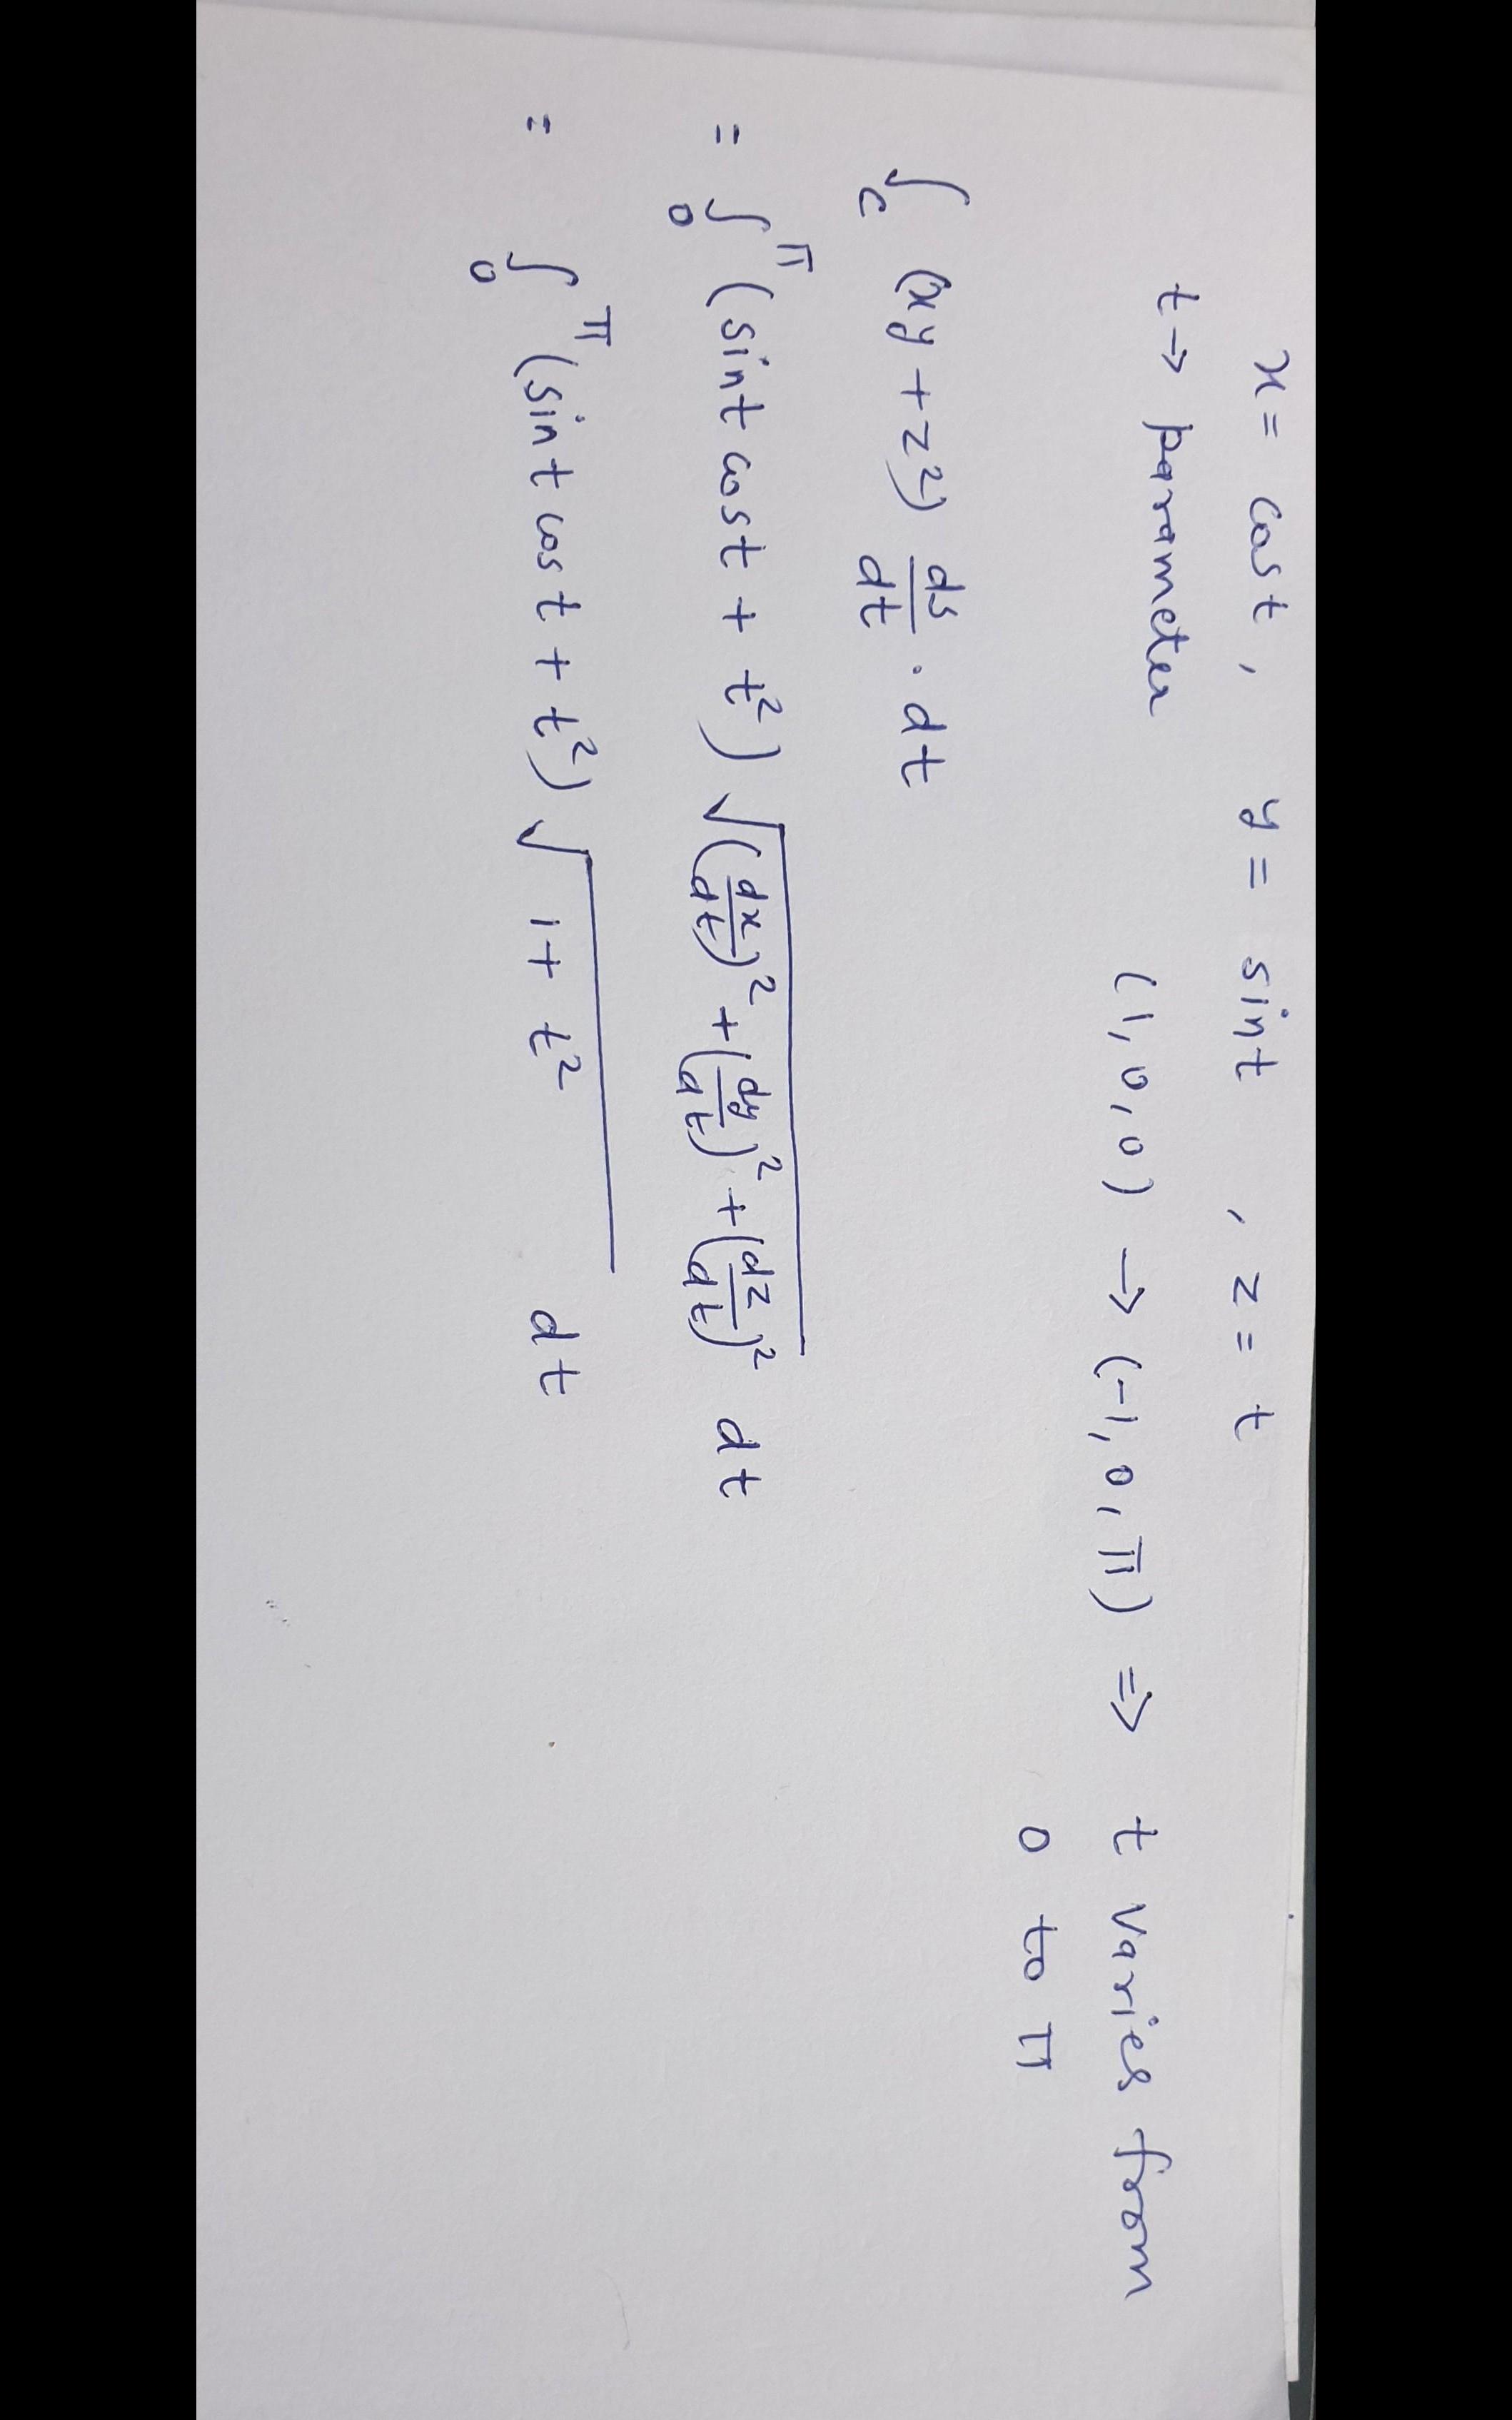 x = cost, y = sint, z = t
t → parameter (1,0,0) → (-1,0,π) ⇒ t varies from
0 to π
∫_C (xy + z²) ds/dt · dt
= ∫_0^π (sint cost + t²) √((dx/dt)² + (dy/dt)² + (dz/dt)²) dt
= ∫_0^π (sint cost + t²) √(1 + t²) dt